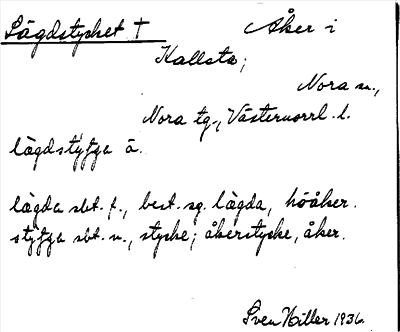 Lägdstycket † Åker i
Kallsta,
Nora sn.,
Nora tg., Västernorrl. l.
lägdstýfga ä.
lägda sbt. f., best. sg. lägda, höåker.
stýfga sbt. n., stycke; åkerstycke, åker.
Sven Hiller 1936.